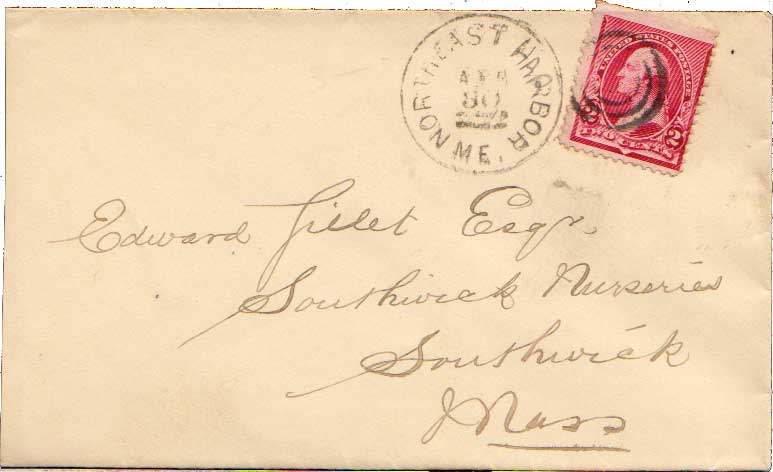 NORTHEAST HARBOR
30
ME.
UNITED STATES POSTAGE
2 2
TWO CENTS
Edward Gillet Esqr.
Southwick Nurseries
Southwick
Mass